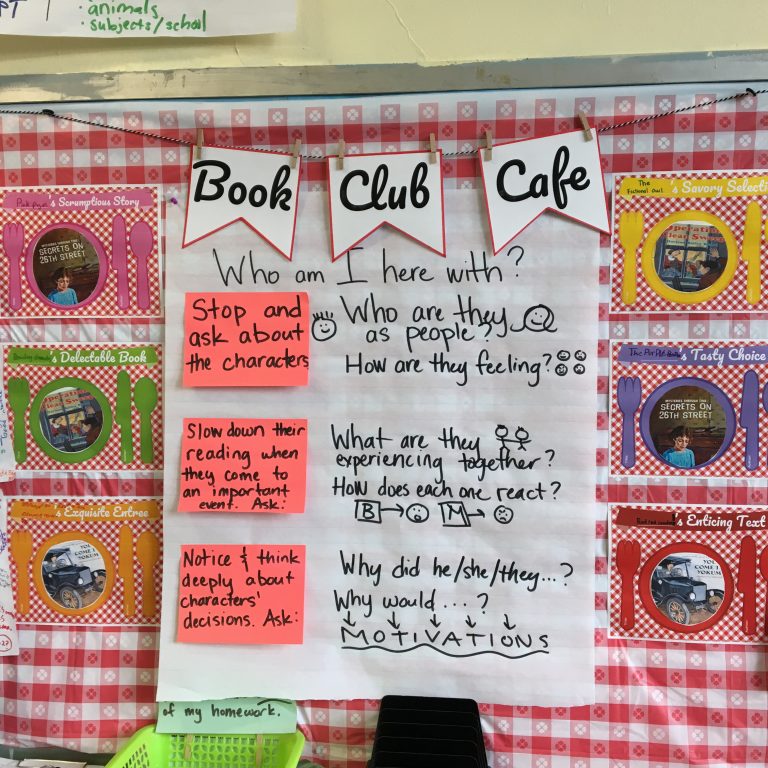 PT
· animals
· subjects/school
Book
Club
Cafe
Who am I here with?
Stop and
ask about
the characters
Who are they
as people?
How are they feeling?
Slow down their
reading when
they come to
an important
event. Ask:
What are they
experiencing together?
How does each one react?
B
M
Notice & think
deeply about
characters'
decisions. Ask:
Why did he/she/they...?
Why would ...?
MOTIVATIONS
's Scrumptious Story
SECRETS ON
26TH STREET
's Delectable Book
Operation
Clean Sweep
's Exquisite Entree
YOU
COME TO
YOKUM
The
Fictional Owl
's Savory Selecti
Operation
Clean Sweep
's Tasty Choice
SECRETS ON
26TH STREET
's Enticing Text
YOU
COME TO
YOKUM
of my homework.